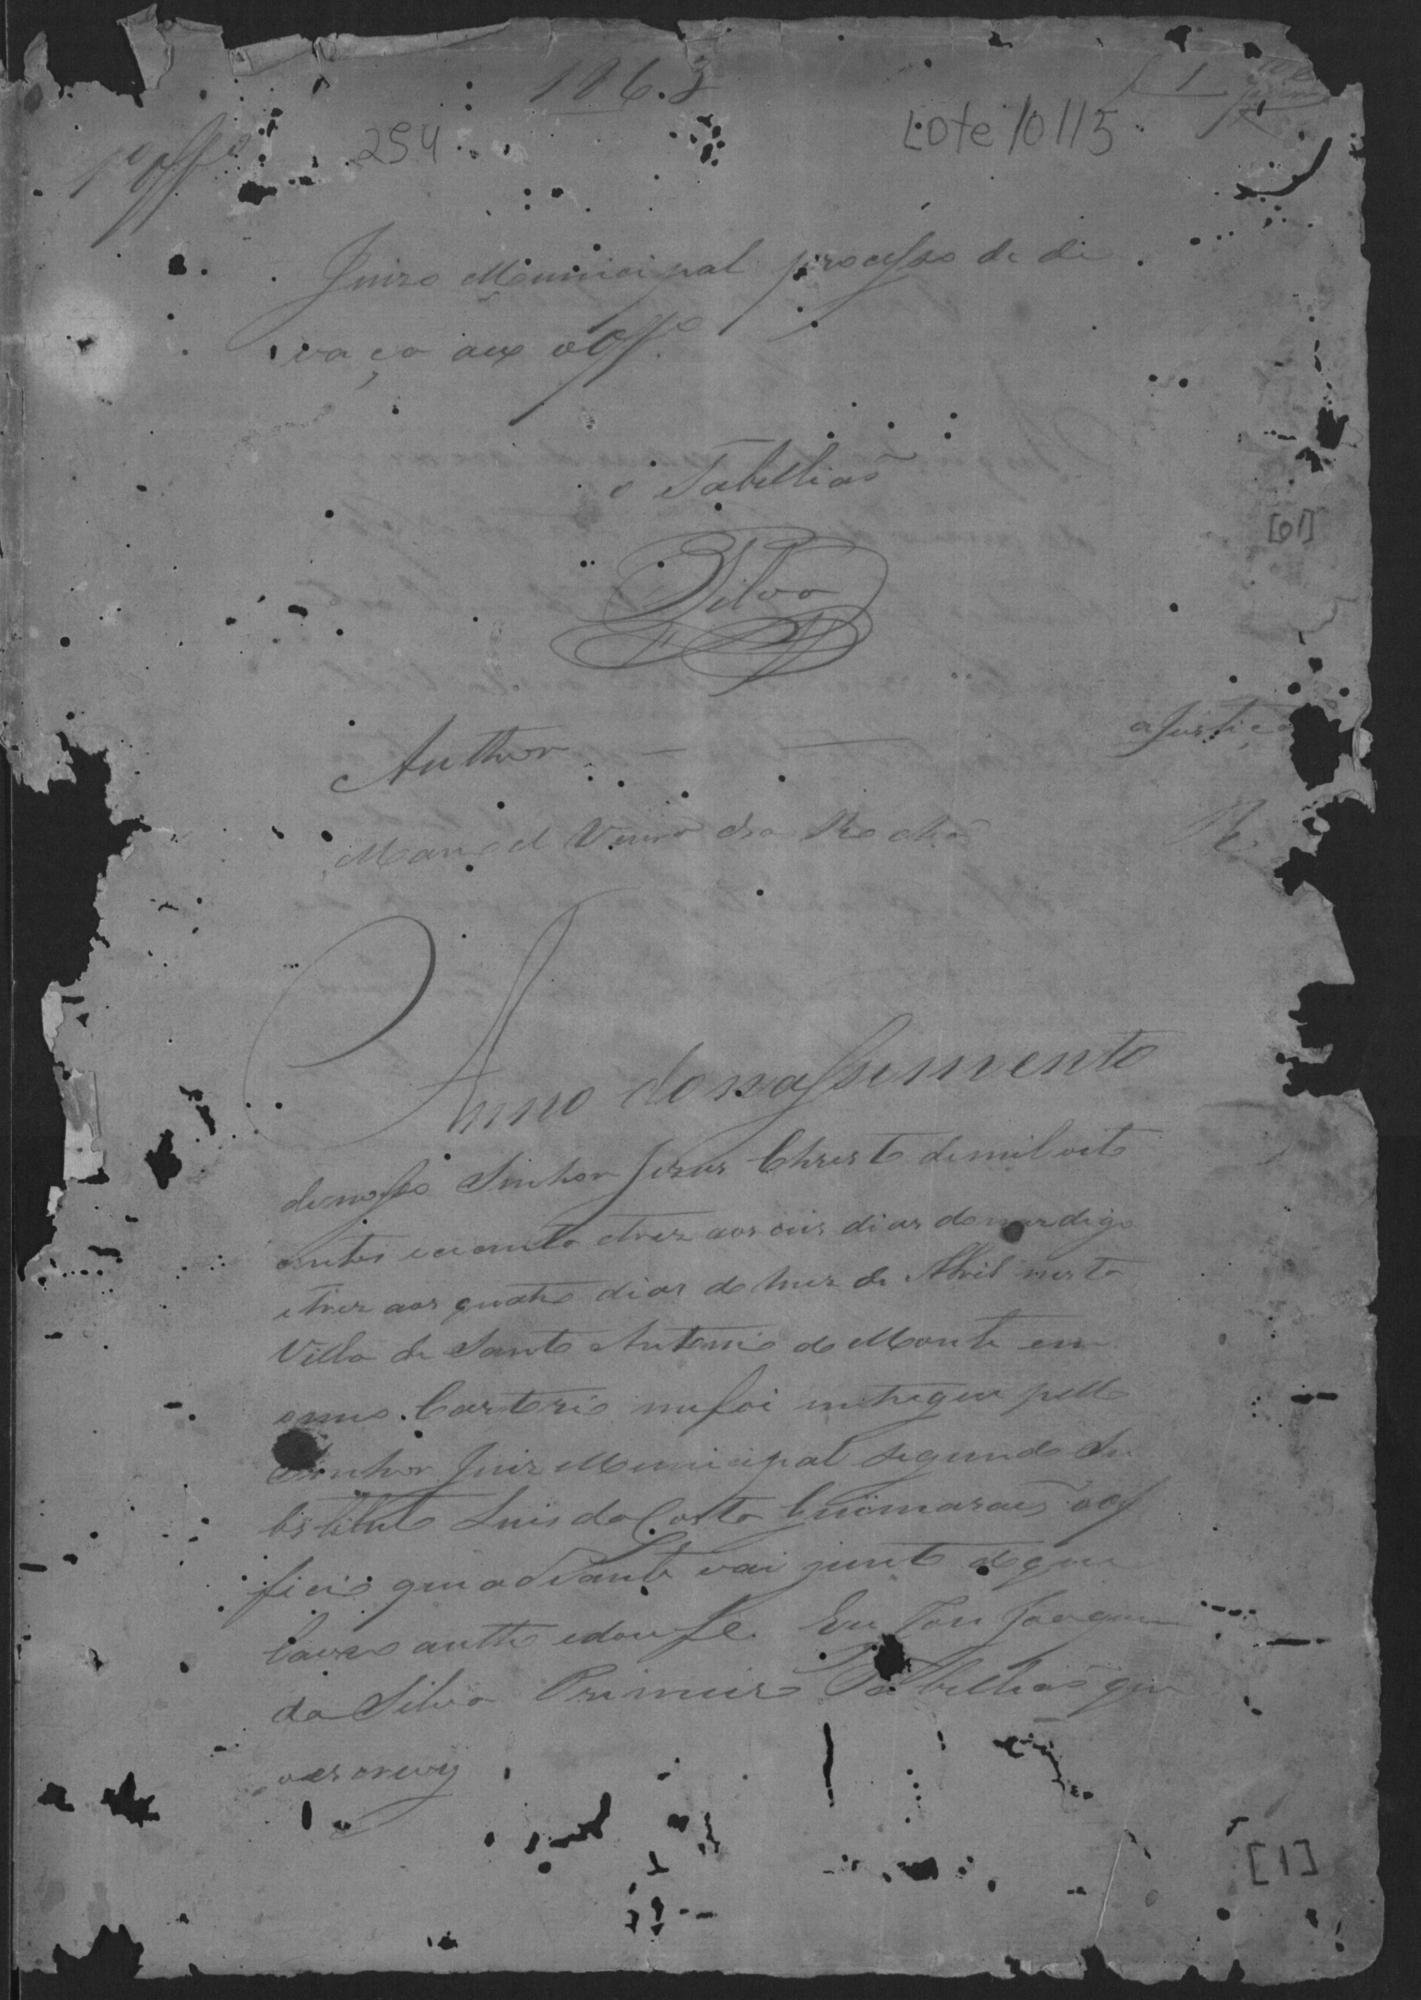 1863
1
1º Offº
254
Lote 10115
Juizo Municipal processo de de
vaça ex offº
o Tabellião
Silva
[01]
Author — — a Justiça
Manoel Vieira da Rocha R
Anno do nassimento
de nosso Senhor Jezus Christo de mil oito
centos e secenta e trez aos seis dias do mez digo
e trez aos quatro dias do mez de Abril nesta
Villa de Santo Antonio do Monte em
o meu Cartorio me foi entregue pello
Senhor Juiz Municipal segundo su
bstituto Luis da Costa Guimaraes o of
ficio que adiante vai junto de que
lavro auto e dou fe. Eu José Joaquim
da Silva Primeiro Tabellião que
o escrevy
[1]